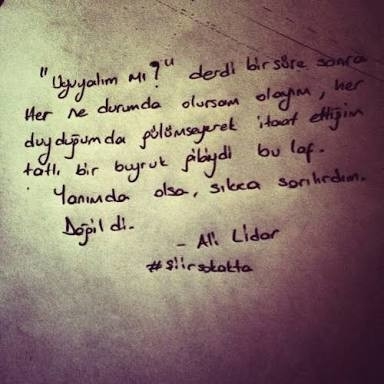 "Uyuyalım mı?" derdi bir süre sonra
Her ne durumda olursam olayım, her
duyduğumda gülümseyerek itaat ettiğim
tatlı bir buyruk gibiydi bu laf.
Yanımda olsa, sıkıca sarılırdım.
Değildi.
- Ali Lidar
#şiirsokakta